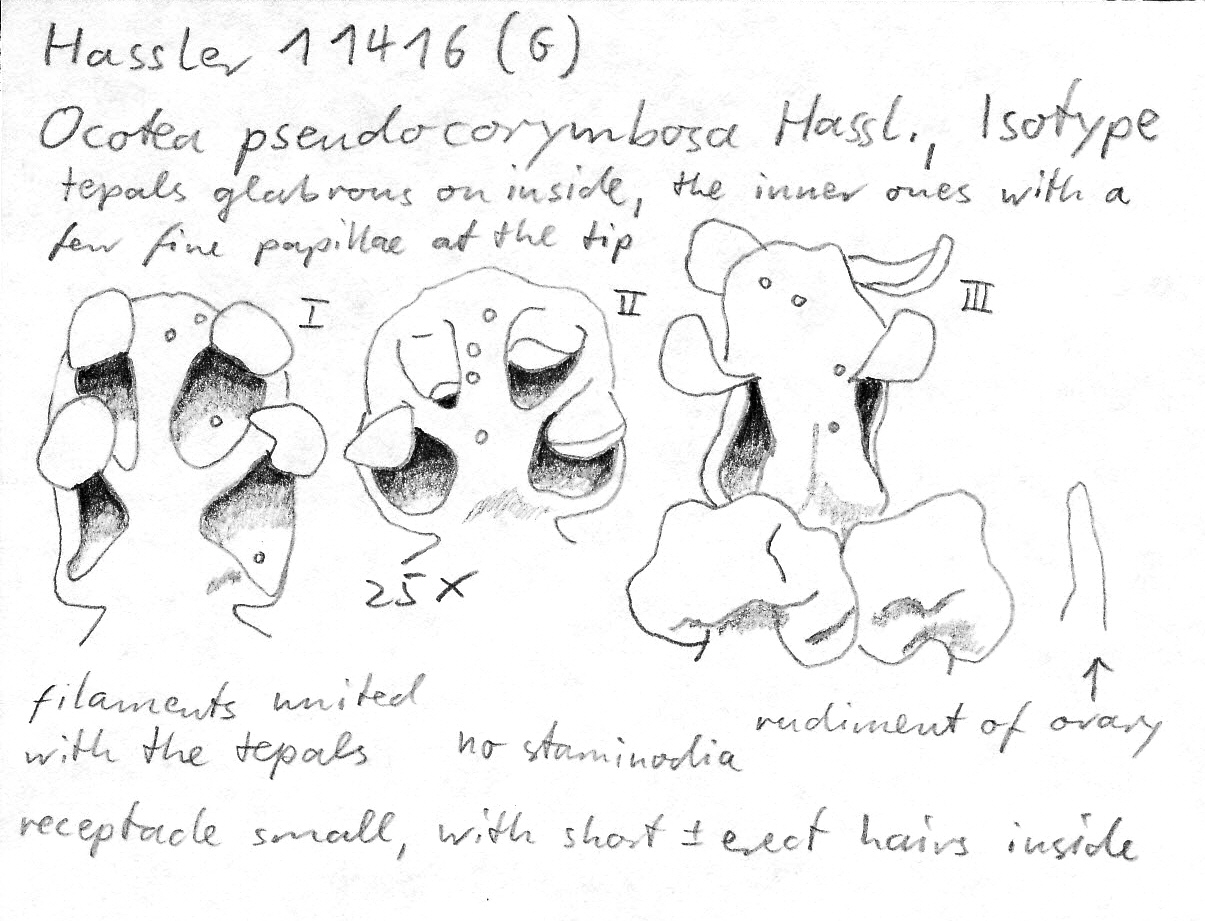 Hassler 11416 (G)
Ocotea pseudocorymbosa Hassl., Isotype
tepals glabrous on inside, the inner ones with a
few fine papillae at the tip
I
II
III
25 x
filaments united
with the tepals
no staminodia
rudiment of ovary
receptacle small, with short ± erect hairs inside